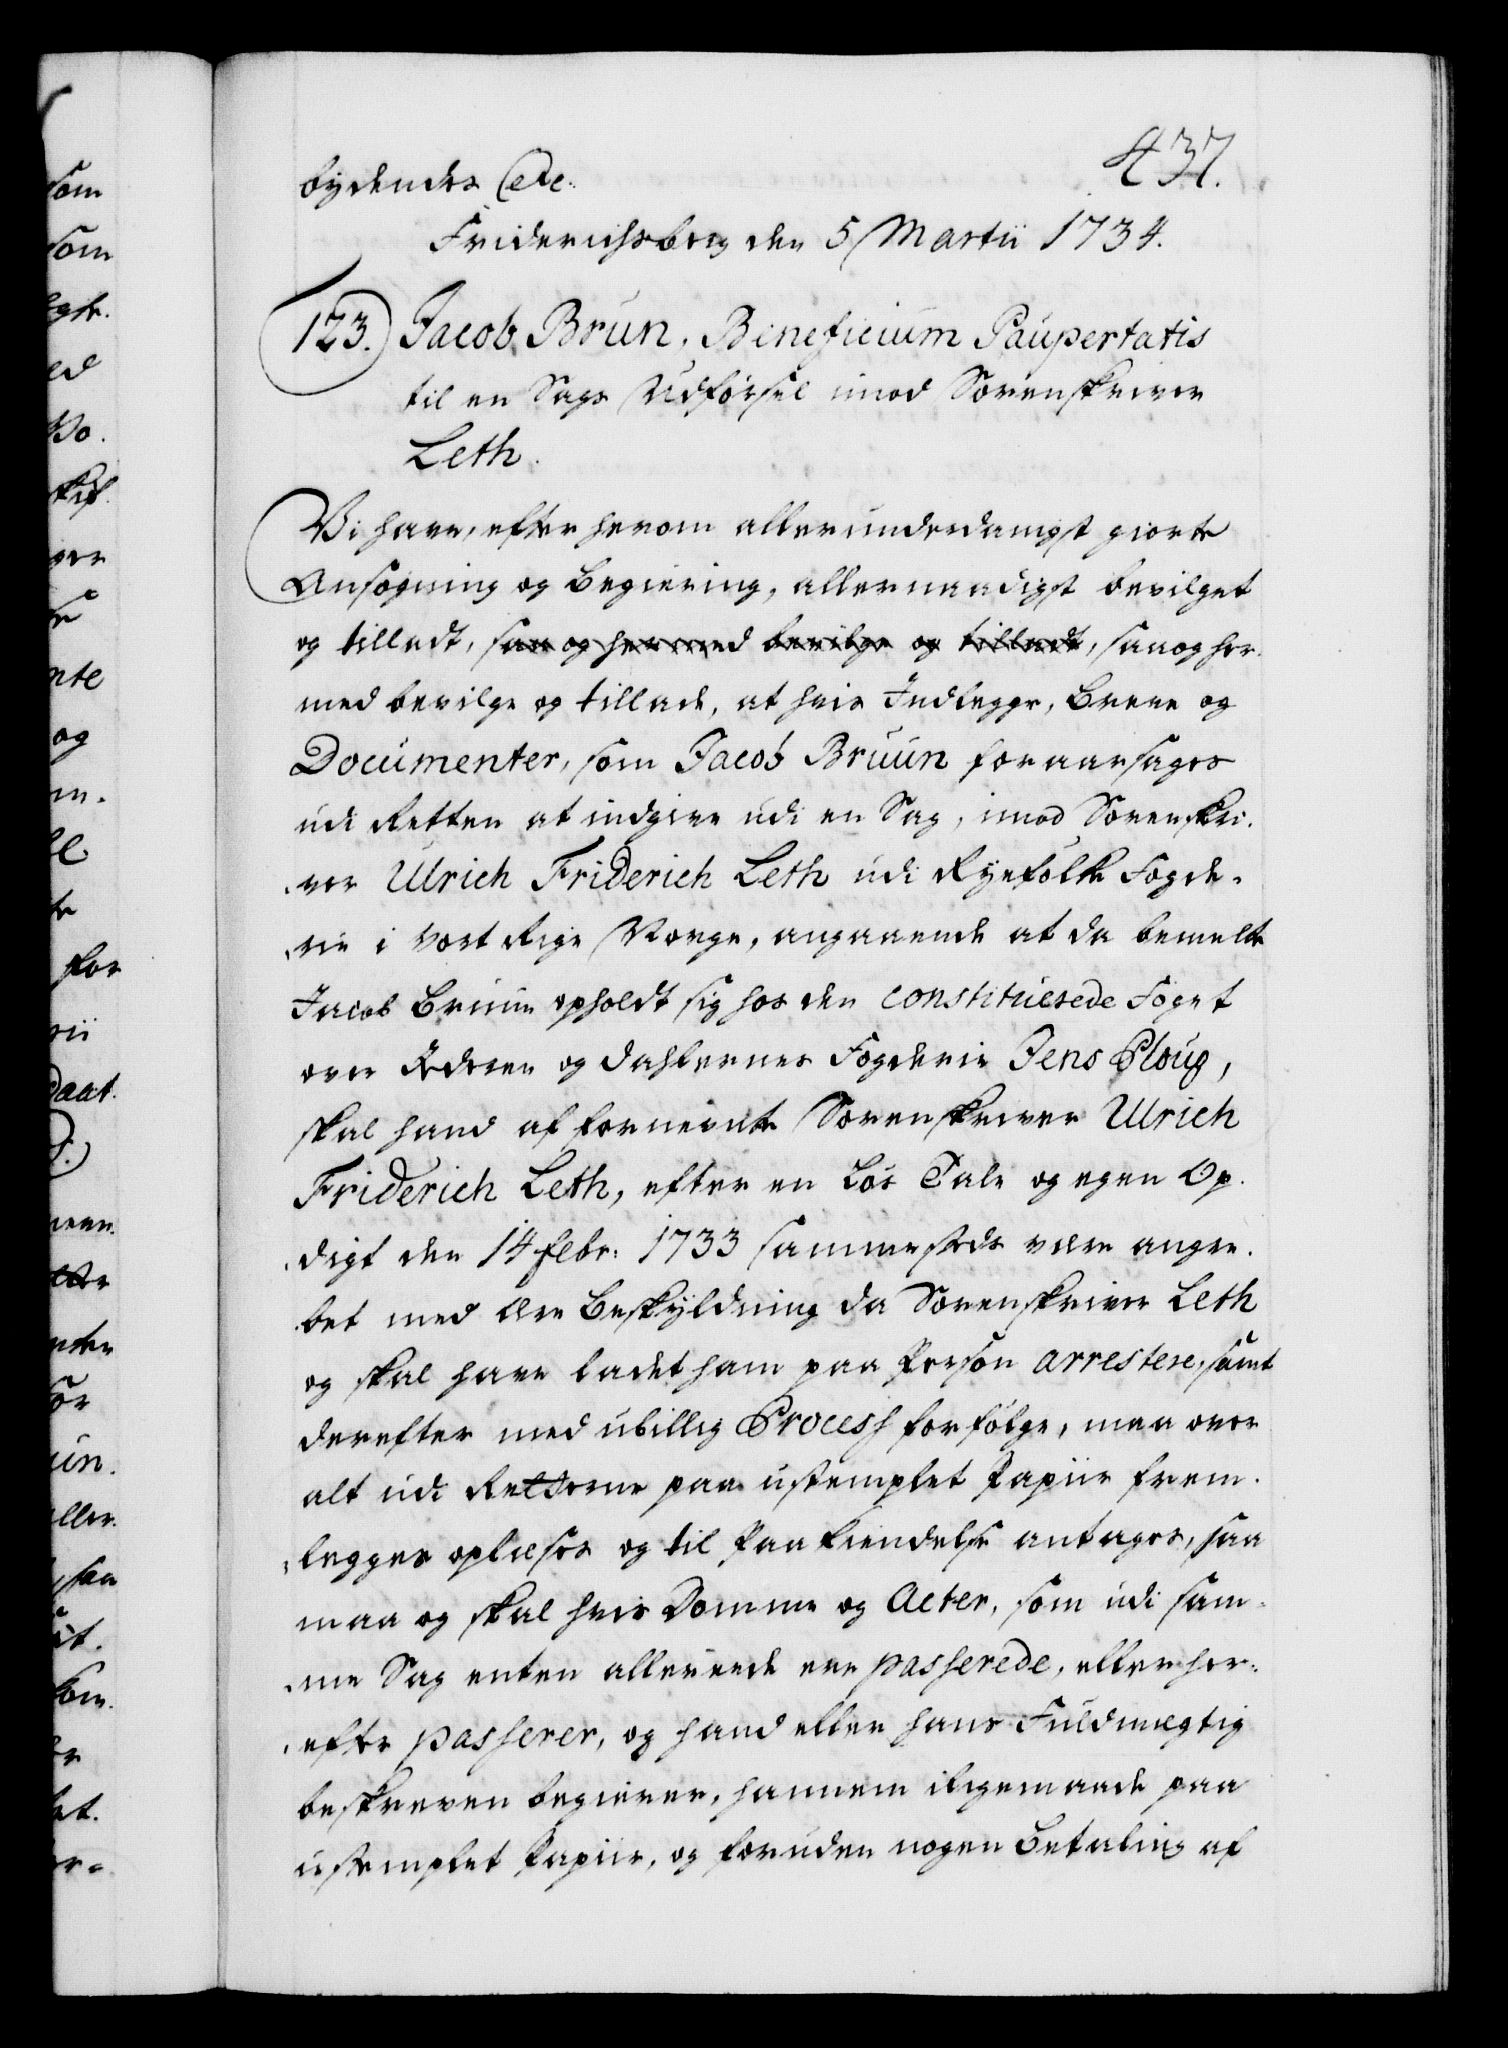 437.
bydendes etc.
Friderichsberg den 5 Martii 1734.
123. Jacob Brun, Beneficium Paupertatis
til en Sags Udførsel imod Sorenskriver
Leth.
Vi have, efter herom allerunderdanigst giorte
Ansøgning og Begiering, allernaadigst bevilget
og tilladt, saa og hermed bevilge og tilladt, saa og her-
med bevilge og tillade, at hvis Indlegge, Breve og
Documenter, som Jacob Bruun foraarsages
udi Retten at indgive udi en Sag, imod Sorenskri-
ver Ulrich Friderich Leth udi Ryefölke Fogde-
rie i vort Rige Norge, angaaende at da bemelte
Jacob Bruun opholdt sig hos den constituerede Foget
over Jederen og Dahlernes Fogderie Jens Ploug,
skal hand af fornevnte Sorenskriver Ulrich
Friderich Leth, efter en Løs Tale og egen Op-
digt den 14 Febr: 1733 sammesteds være angre-
bet med Ære Beskyldning da Sorenskriver Leth
og skal have ladet ham paa Person arrestere, samt
derefter med ubillig Process forfølge, maa over
alt udi Retterne paa ustemplet Papiir frem-
legges oplæses og til Paakiendelse antages, saa
maa og skal hvis Domme og Acter, som udi sam-
me Sag enten allereede ere passerede, eller her-
efter passerer, og hand eller hans Fuldmegtig
beskreven begierer, hannem iligemaade paa
ustemplet Papiir, og foruden nogen Betaling af